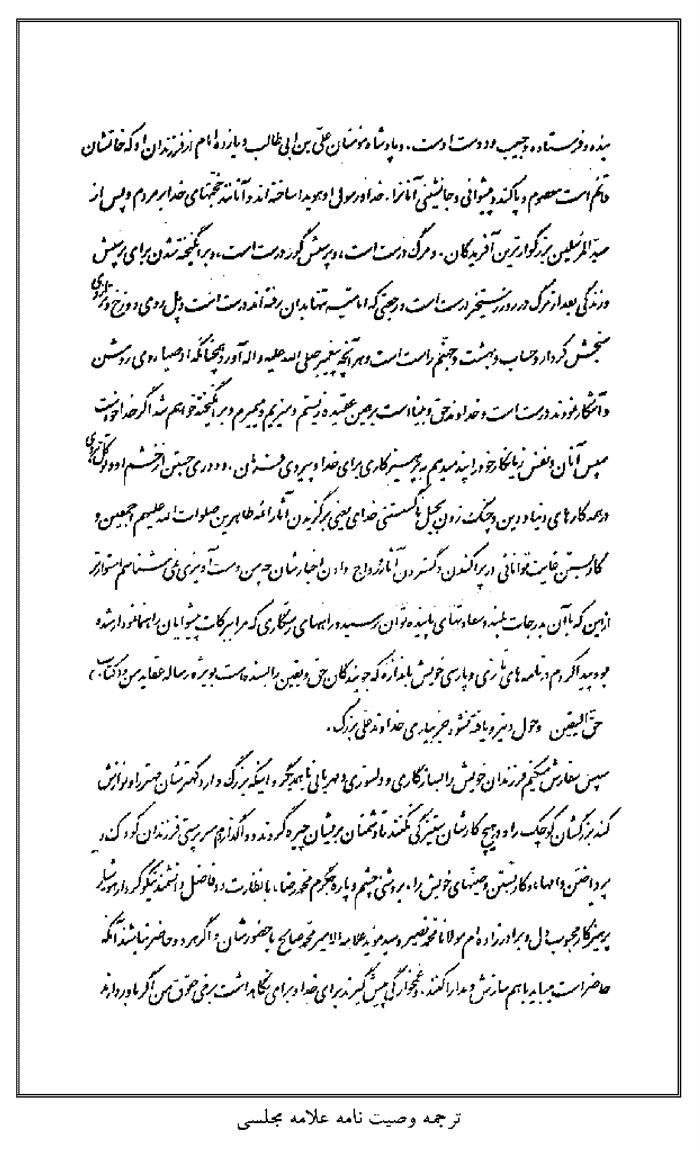 بنده و فرستاده و حبیب و دوست اوست. و پادشاه مؤمنان علی بن ابی طالب و یازده امام از فرزندان او که خاتمشان
قائم است معصوم و پاکند و پیشوائی و جانشینی آنانرا. خدا و رسولی او هویدا ساخته اند و آنانند حجتهای خدا بر مردم و پس از
سید المرسلین بزرگوارترین آفریدگان. و مرگ درست است، و پرسش گور درست است، و برانگیخته شدن برای پرسش
و زندگی بعد از مرگ در روز رستخیز درست است و رجعتی که امامیه تنها بدان رفته اند درست است و پل روی دوزخ و ترازوی
سنجش کردار و حساب و بهشت و جهنم راست است و هر آنچه پیغمبر صلی الله علیه و اله آورد و همچنانکه اوصیا روی روشن
و آشکار نمودند درست است و خداوند حق و بینا است بر همین عقیده زیستم و میزیم و میمیرم و برانگیخته خواهم شد اگر خدا خواست
سپس آنان و نفس زیانکار خود را پند میدهم به پرهیزکاری برای خدا و پیروی فرمان. و دوری جستن از خشم او و توکل بروی
در همه کارهای دنیا و دین و چنگ زدن بحبل ناگسستنی خدای یعنی برگزیدن آثار ائمه طاهرین صلوات الله علیهم اجمعین و
کار بستن غایت توانائی در پراکندن و گستردن آثار و رواج دادن اخبارشان چه من دست آویزی نمی شناسم استوارتر
ازین که با آن بدرجات بلند و سعادتهای پاینده توان رسید و راههای رستگاری که مرا ببرکات پیشوایان راهنما نمودار شده
بود پیدا کردم در نامه های تازی و پارسی خویش باندازه که جویندگان حق و یقین را بسنده است بویژه رساله عقاید من و (کتاب)
حق الیقین و حول و نیرو یافته نشود جز بیاری خداوند علی بزرگ.
سپس سفارش میکنم فرزندان خویش را بسازگاری و دلسوزی و مهربانی با همدیگر و اینکه بزرگ دارد کهترشان مهتر را و نوازش
کند بزرگشان کوچک را و در هیچ کارشان ستیزگی نکنند تا دشمنان بریشان چیره گردند و واگذارم سرپرستی فرزندان کودک و
پرداختن وامها، و کار بستن وصیتهای خویش را، بروشنی چشم و پاره جگرم محمد رضا، با نظارت دو فاضل دانشمند نیکو کردار هوشیار
پرهیزکار محبوب دل و برادرزاده ام مولانا محمد نصیر و سید موید علامه الامیر محمد صالح با حضورشان و اگر هر دو حاضر نباشند آنکه
حاضر است میباید با هم سازش و مدارا کنند. و غمخوارگی پیش گیرند برای خدا و برای نگاهداشت برخی حقوق من اگر باور دارند
ترجمه وصیت نامه علامه مجلسی